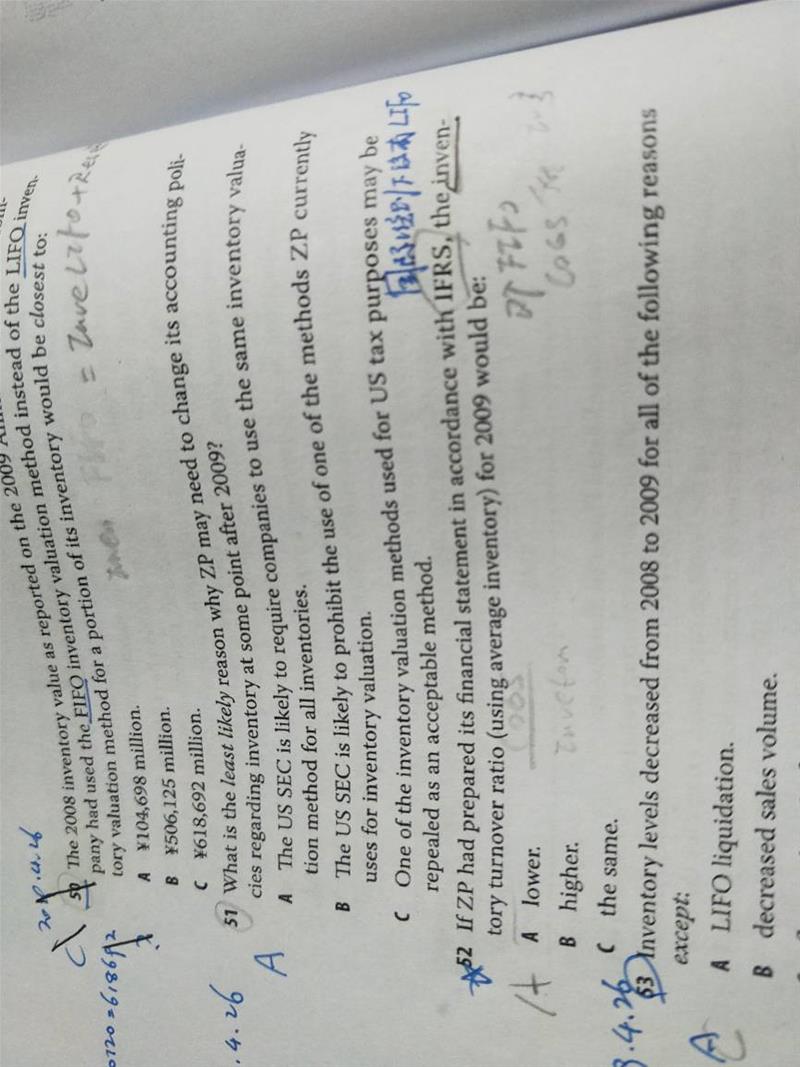 the 2009
instead of the LIFO inven-
50 The 2008 inventory value as reported on the 2009
pany had used the FIFO inventory valuation method instead of the LIFO inven-
tory valuation method for a portion of its inventory would be closest to:
FIFO = Inve LIFO +
A ¥104,698 million.
B ¥506,125 million.
C ¥618,692 million.
51 What is the least likely reason why ZP may need to change its accounting poli-
cies regarding inventory at some point after 2009?
A The US SEC is likely to require companies to use the same inventory valua-
tion method for all inventories.
B The US SEC is likely to prohibit the use of one of the methods ZP currently
uses for inventory valuation.
C One of the inventory valuation methods used for US tax purposes may be
repealed as an acceptable method.
LIFO
52 If ZP had prepared its financial statement in accordance with IFRS, the inven-
tory turnover ratio (using average inventory) for 2009 would be:
FIFO
COGS
A lower.
B higher.
C the same.
53 Inventory levels decreased from 2008 to 2009 for all of the following reasons
except:
A LIFO liquidation.
B decreased sales volume.